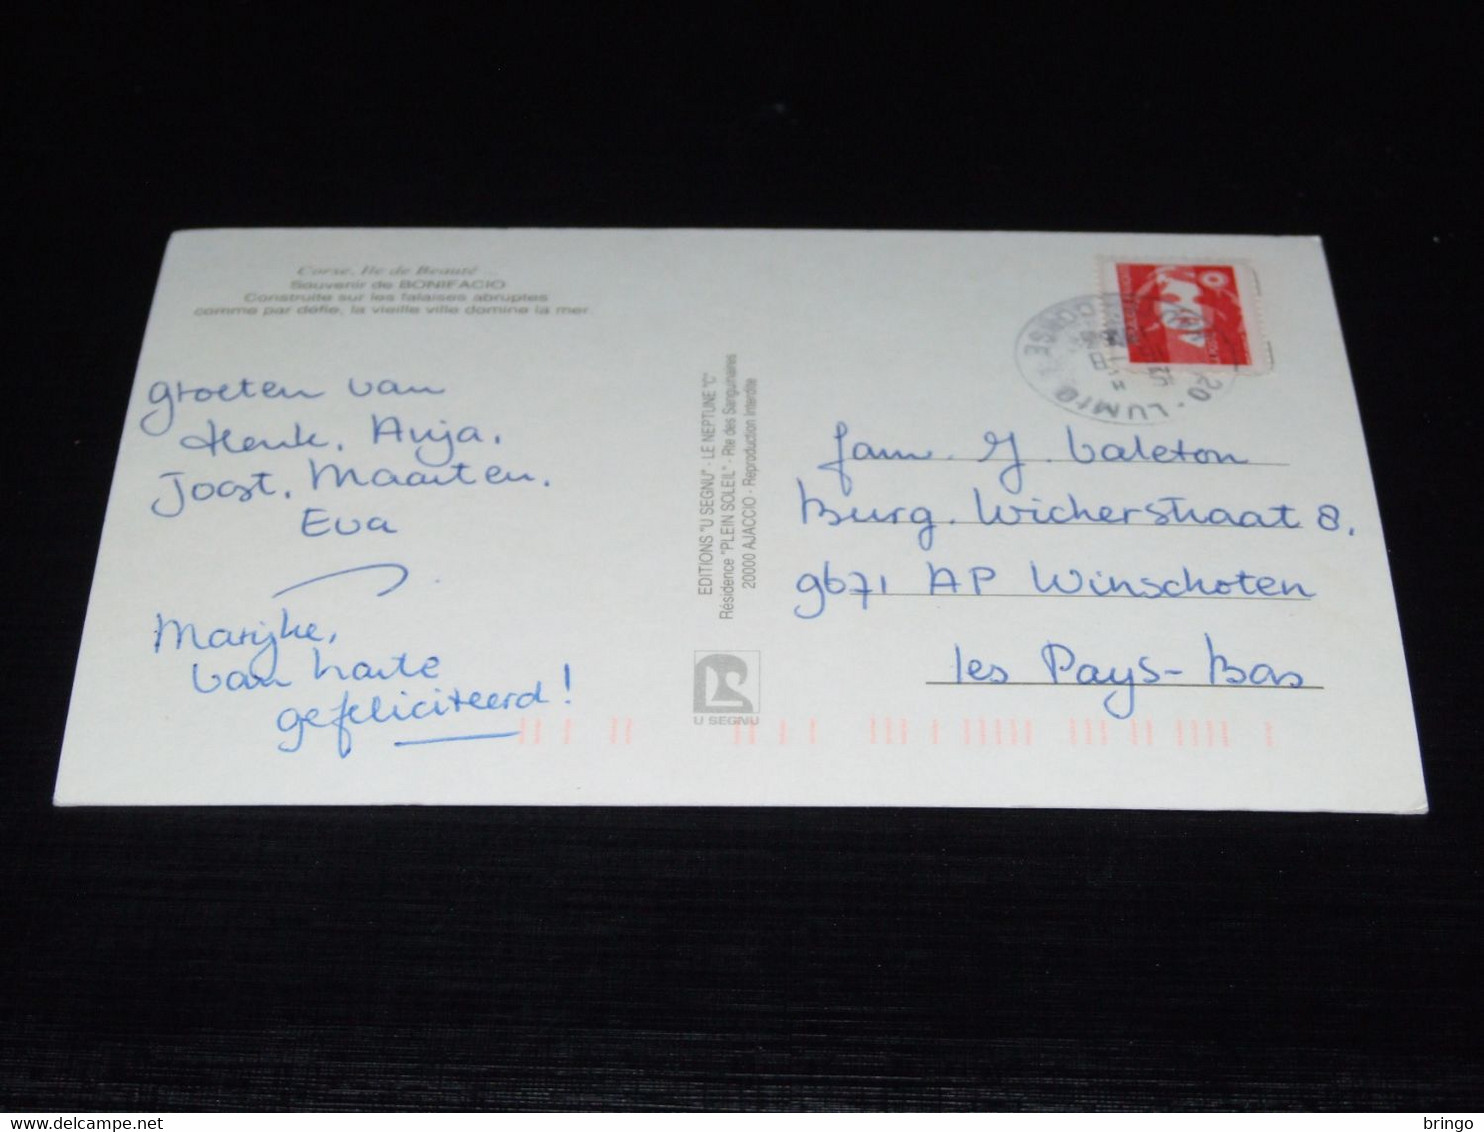 Corse, Ile de Beauté ...
Souvenir de BONIFACIO
Construite sur les falaises abruptes
comme par défie, la vieille ville domine la mer
groeten van
Henk, Anja,
Joost, Maarten,
Eva
Marijke,
van harte
gefeliciteerd!
EDITIONS "U SEGNU" - LE NEPTUNE "C"
Résidence "PLEIN SOLEIL" - Rte des Sanguinaires
20000 AJACCIO - Reproduction Interdite
U SEGNU
20 - LUMIO
CORSE
fam. J. Valeton
Burg. Wicherstraat 8.
9671 AP Winschoten
les Pays-Bas
bringo